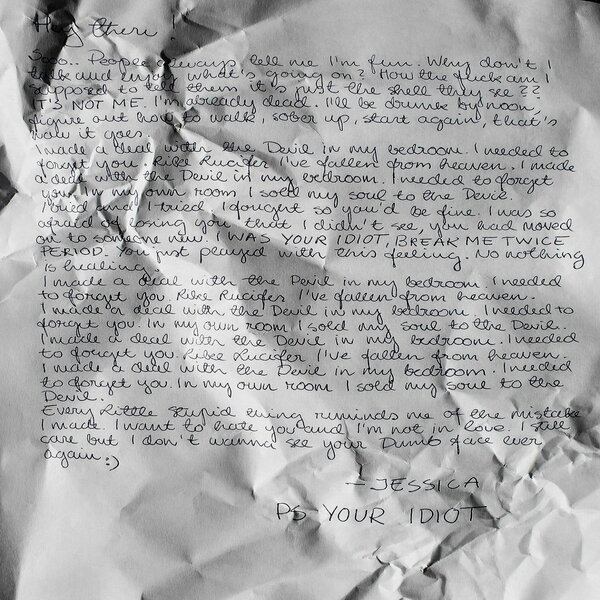 Hey there!
Sooo.. People always tell me I'm fun. Why don't I
talk and enjoy what's going on? How the fuck am I
supposed to tell them it's just the shell they see??
IT'S NOT ME. I'm already dead. I'll be drunk by noon,
figure out how to walk, sober up, start again, that's
how it goes
I made a deal with the Devil in my bedroom. I needed to
forget you. Like Lucifer I've fallen from heaven. I made
a deal with the Devil in my bedroom. I needed to forget
you. In my own room I sold my soul to the Devil.
I tried and I tried, I fought so you'd be fine. I was so
afraid of losing you, that I didn't see, you had moved
on to someone new. I WAS YOUR IDIOT, BREAK ME TWICE
PERIOD. You just played with this feeling. No nothing
is healing.
I made a deal with the Devil in my bedroom I needed
to forget you. Like Lucifer I've fallen from heaven.
I made a deal with the Devil in my bedroom I needed to
forget you. In my own room I sold my soul to the Devil.
I made a deal with the Devil in my bedroom. I needed
to forget you. Like Lucifer I've fallen from heaven.
I made a deal with the Devil in my bedroom. I needed
to forget you. In my own room I sold my soul to the
Devil.
Every little stupid thing reminds me of the mistake
I made. I want to hate you and I'm not in love. I still
care but I don't wanna see your Dumb face ever
again :)
- JESSICA
PS YOUR IDIOT